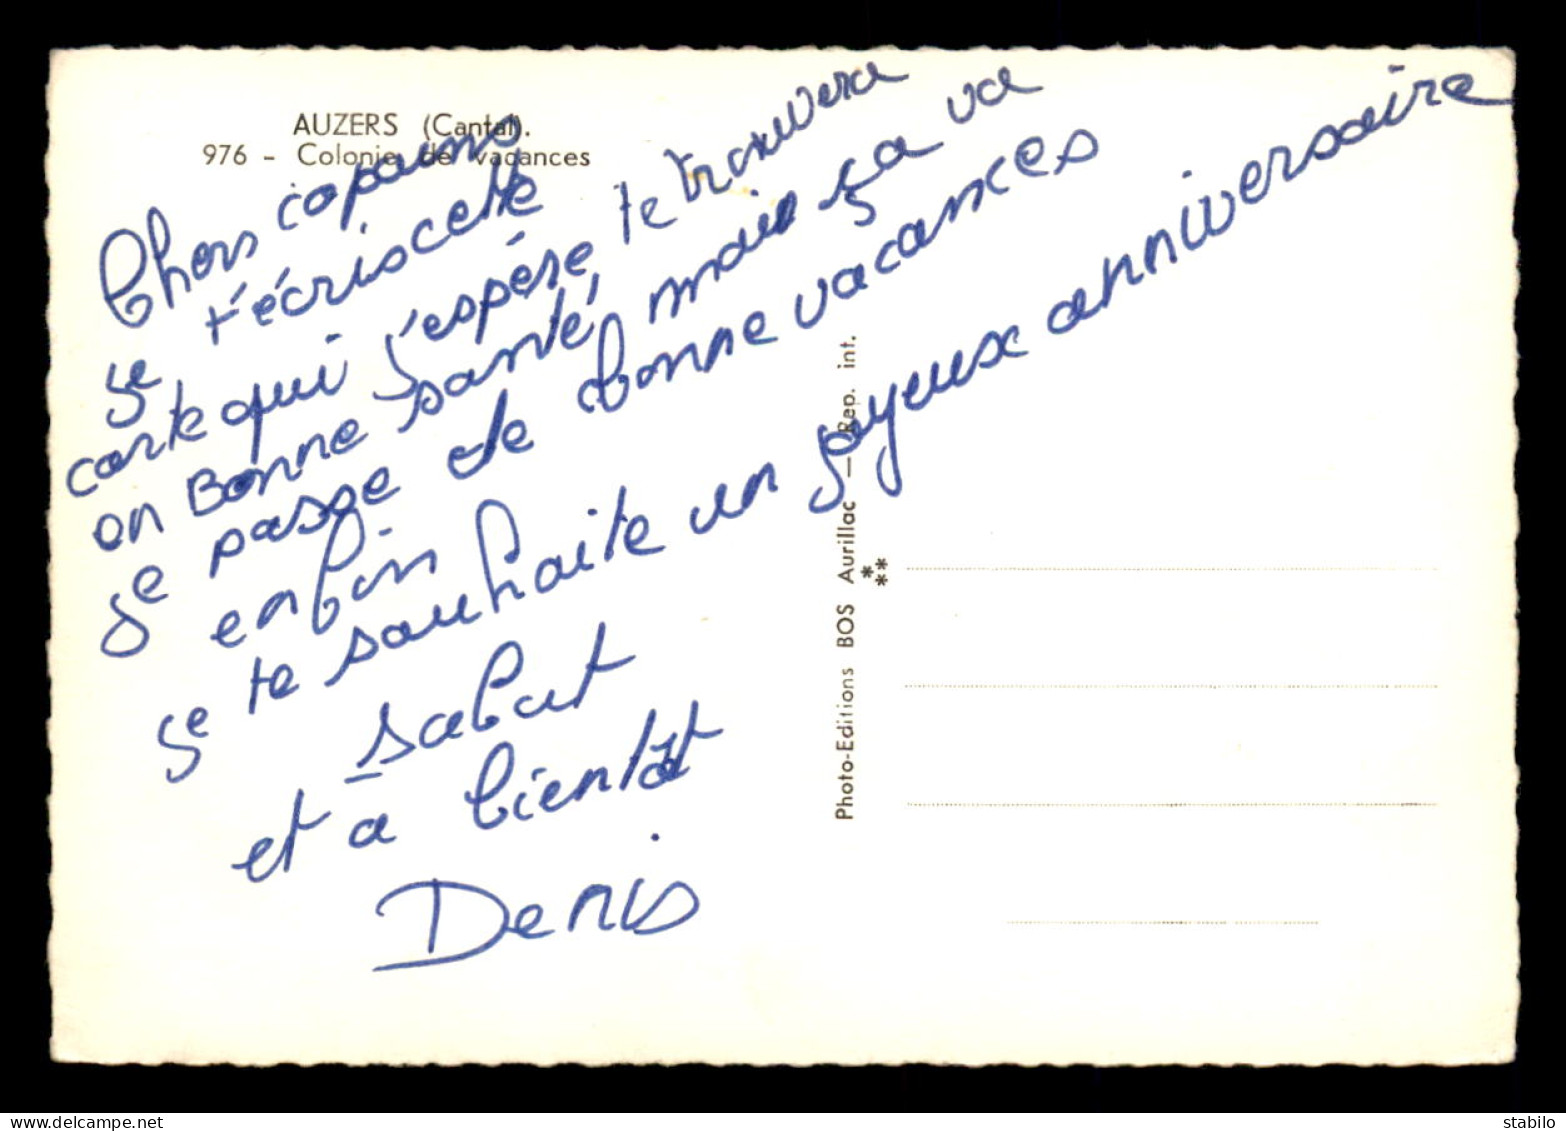 AUZERS (Cantal).
976 - Colonie de vacances
Chers copains
je t'écris cette
carte qui j'espére te trouvera
en Bonne santé, moi ça va
je passe de bonne vacances
enfin
je te souhaite un joyeux anniversaire
salut
et a bientôt
Denis
Photo-Editions BOS Aurillac — Rep. int.
*
**
delcampe.net
stabilo